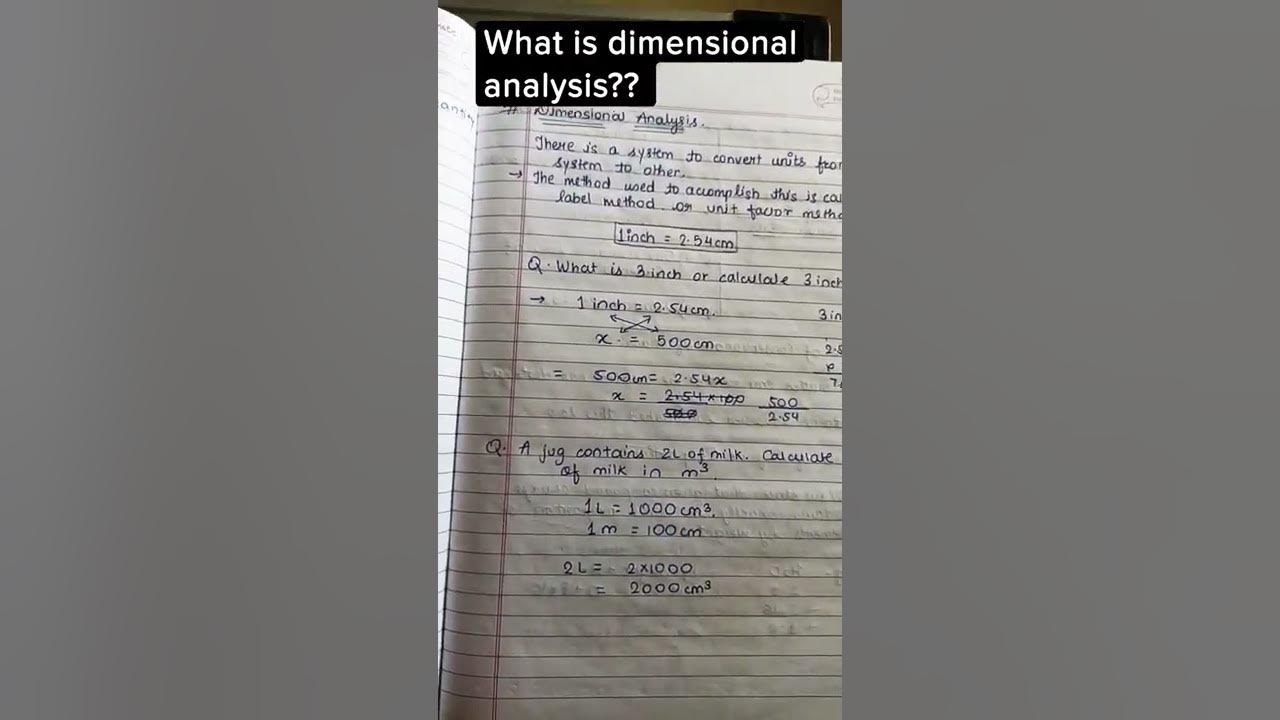 What is dimensional
analysis??
# Dimensional Analysis.
There is a system to convert units from
system to other.
→ The method used to accomplish this is
label method or unit factor
1 inch = 2.54cm
Q. What is 3 inch or calculate 3 inch
→ 1 inch = 2.54cm. 3 in
x = 500cm
= 500cm = 2.54x
x = 2.54×100 500
500 2.54
Q. A jug contains 2L of milk. Calculate
of milk in m³.
1L = 1000cm³.
1m = 100cm
2L = 2×1000
= 2000cm³